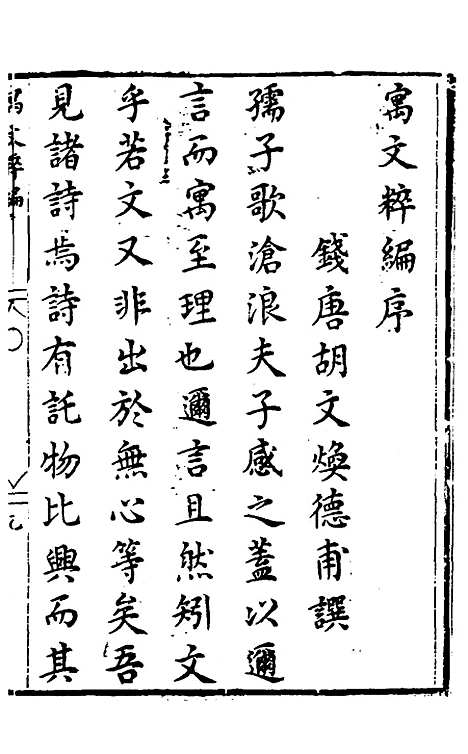 寓文粹編序
錢唐胡文煥德甫譔
孺子歌滄浪夫子感之蓋以邇
言而寓至理也邇言且然矧文
乎若文又非出於無心等矣吾
見諸詩焉詩有託物比興而其
寓文粹編